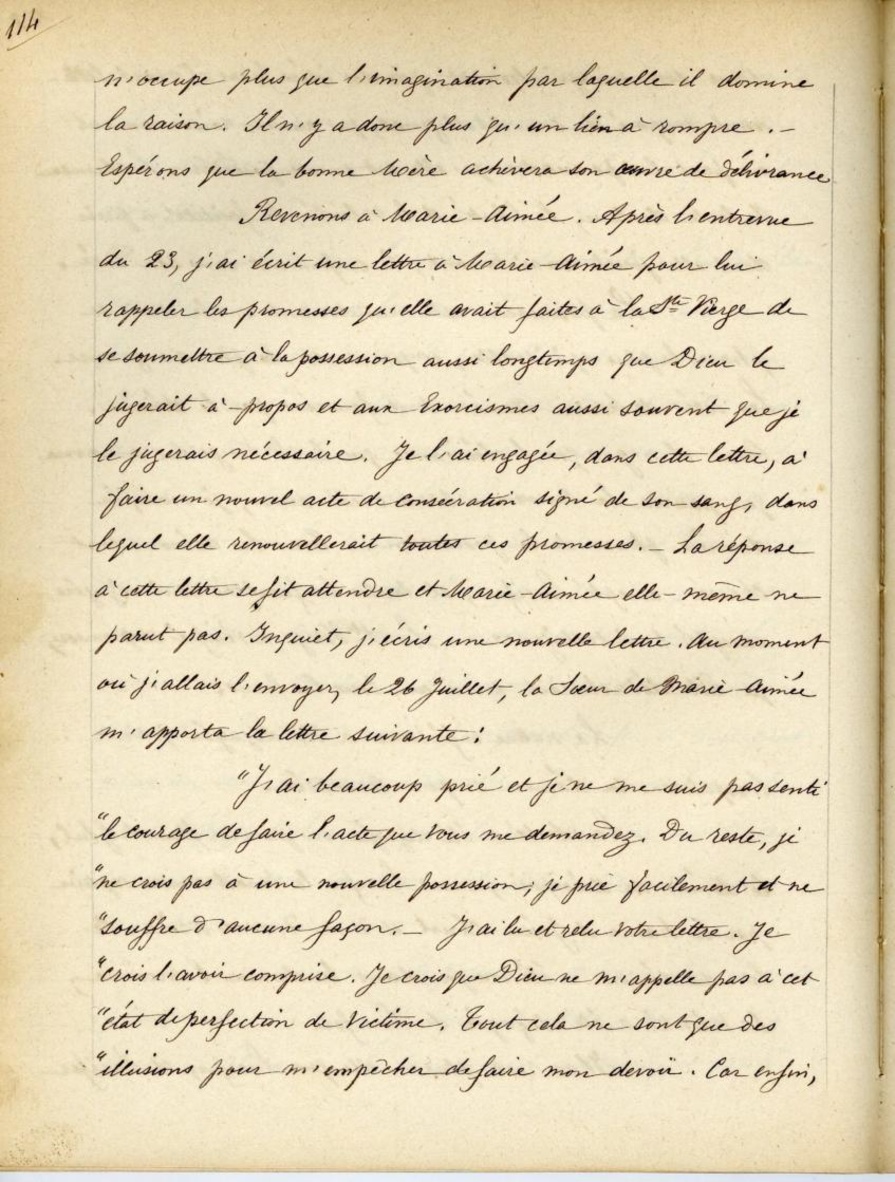 114
n'occupe plus que l'imagination par laquelle il domine
la raison. Il n'y a donc plus qu'un lien à rompre. –
Espérons que la bonne Mère achèvera son œuvre de délivrance
Revenons à Marie-Aimée. Après l'entrevue
du 23, j'ai écrit une lettre à Marie-Aimée pour lui
rappeler les promesses qu'elle avait faites à la Ste Vierge de
se soumettre à la possession aussi longtemps que Dieu le
jugerait à-propos et aux Exorcismes aussi souvent que je
le jugerais nécessaire. Je l'ai engagée, dans cette lettre, à
faire un nouvel acte de consécration signé de son sang, dans
lequel elle renouvellerait toutes ces promesses. – La réponse
à cette lettre se fit attendre et Marie-Aimée elle-même ne
parut pas. Inquiet, j'écris une nouvelle lettre. Au moment
où j'allais l'envoyer, le 26 Juillet, la Sœur de Marie-Aimée
m'apporta la lettre suivante :
"J'ai beaucoup prié et je ne me suis pas senti
"le courage de faire l'acte que vous me demandez. Du reste, je
"ne crois pas à une nouvelle possession; je prie facilement et ne
"souffre d'aucune façon. – J'ai lu et relu votre lettre. Je
"crois l'avoir comprise. Je crois que Dieu ne m'appelle pas à cet
"état de perfection de Victime. Tout cela ne sont que des
"illusions pour m'empêcher de faire mon devoir. Car enfin,